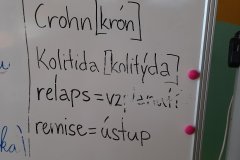 Crohn [krón]
Kolitida [kolitýda]
relaps = vz
remise = ústup